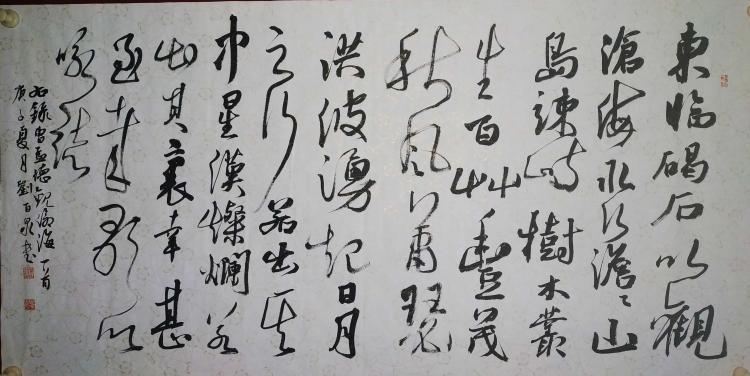 東臨碣石以觀
滄海水何澹〻山
島竦峙樹木叢
生百艸豐茂
秋風蕭瑟
洪波湧起日月
之行若出其
中星漢燦爛若
出其裏幸甚
至哉歌以
詠志
錄曹孟德觀滄海一首
庚子夏月劉百泉書